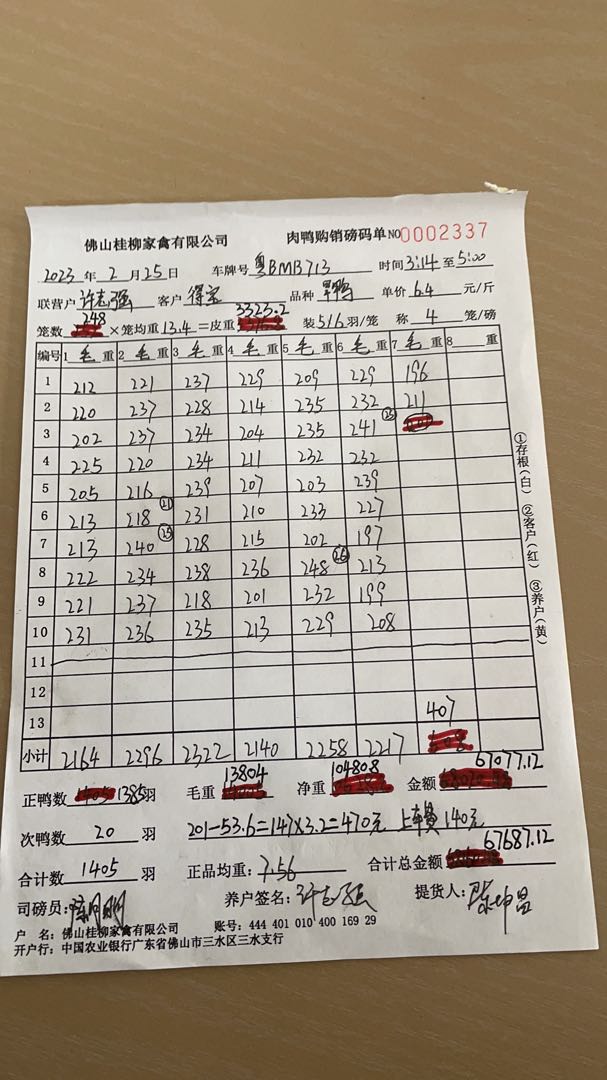 佛山桂柳家禽有限公司 肉鸭购销磅码单 NO 0002337
2023 年 2 月 25 日 车牌号 粤BMB713 时间 3:14 至 5:00
联营户 许志强 客户 得宝 品种 旱鸭 单价 6.4 元/斤
笼数 248 × 笼均重 13.4 = 皮重 3323.2 装 5/6 羽/笼 称 4 笼/磅
编号 1 毛 重 2 毛 重 3 毛 重 4 毛 重 5 毛 重 6 毛 重 7 毛 重 8 重
1 212 221 237 229 209 229 196
2 220 237 228 214 235 232 211
3 202 237 234 204 235 241 25
4 225 220 234 211 232 232
5 205 216 239 207 203 239
6 213 218 21 231 210 233 227
7 213 240 25 228 215 202 197
8 222 234 238 236 248 26 213
9 221 237 218 201 232 199
10 231 236 235 213 229 208
11
12
13 407
小计 2164 2296 2322 2140 2258 2217
正鸭数 1405 1385 羽 毛重 13804 净重 10480.8 金额 67077.12
次鸭数 20 羽 201-53.6=147×3.2=470元 上车费 140元
合计数 1405 羽 正品均重: 7.56 合计总金额 67687.12
司磅员: 养户签名: 许志强 提货人: 陈坤昌
户 名: 佛山桂柳家禽有限公司 账号: 444 401 010 400 169 29
开户行: 中国农业银行广东省佛山市三水区三水支行
①存根(白) ②客户(红) ③养户(黄)